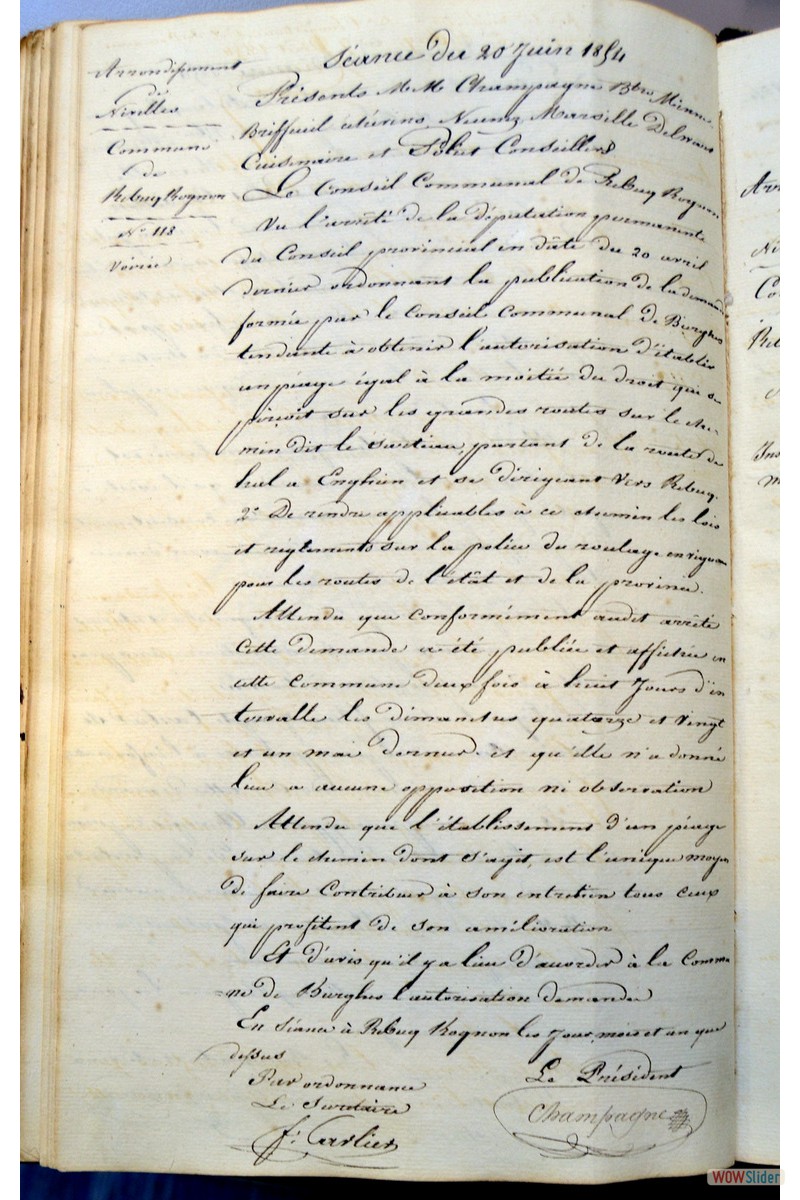 Séance du 20 Juin 1854
Arrondissement
de
Nivelles
Commune
de
Rebecq Rognon
N° 118
Voirie
Présents M M Champagne Btre Minne
Briffeuil Marseille Delwart
Cuisenaire et Poliet Conseillers
Le Conseil Communal de Rebecq Rognon
Vu l'arrêté de la députation permanente
du Conseil provincial en dâte du 20 avril
dernier ordonnant la publication de la demande
formée par le Conseil communal de Bierghes
tendante à obtenir l'autorisation d'établir
un péage égal à la moitié du droit qui se
perçoit sur les grandes routes sur le che-
min dit le sarteau, partant de la route de
hal a Enghien et se dirigeant vers Rebecq.
2° De rendre applicables à ce chemin les lois
et règlements sur la police du roulage en vigueur
pour les routes de l'état et de la province.
Attendu que conformément audit arrêté
cette demande a été publiée et affichée en
cette commune deux fois à huit Jours d'in
tervalle les dimanches quatorze et vingt
et un mai dernier et qu'elle n'a donné
lieu a aucune opposition ni observation
Attendu que l'établissement d'un péage
sur le chemin dont s'agit, est l'unique moyen
de faire contribuer à son entretien tous ceux
qui profitent de son amélioration
Est d'avis qu'il y a lieu d'accorder à la Commu
=ne de Bierghes l'autorisation demandée
En séance à Rebecq Rognon les Jour, mois et an que
dessus
Par ordonnance
Le Secrétaire
f: Carlier
Le Président
Champagne
WOWSlider